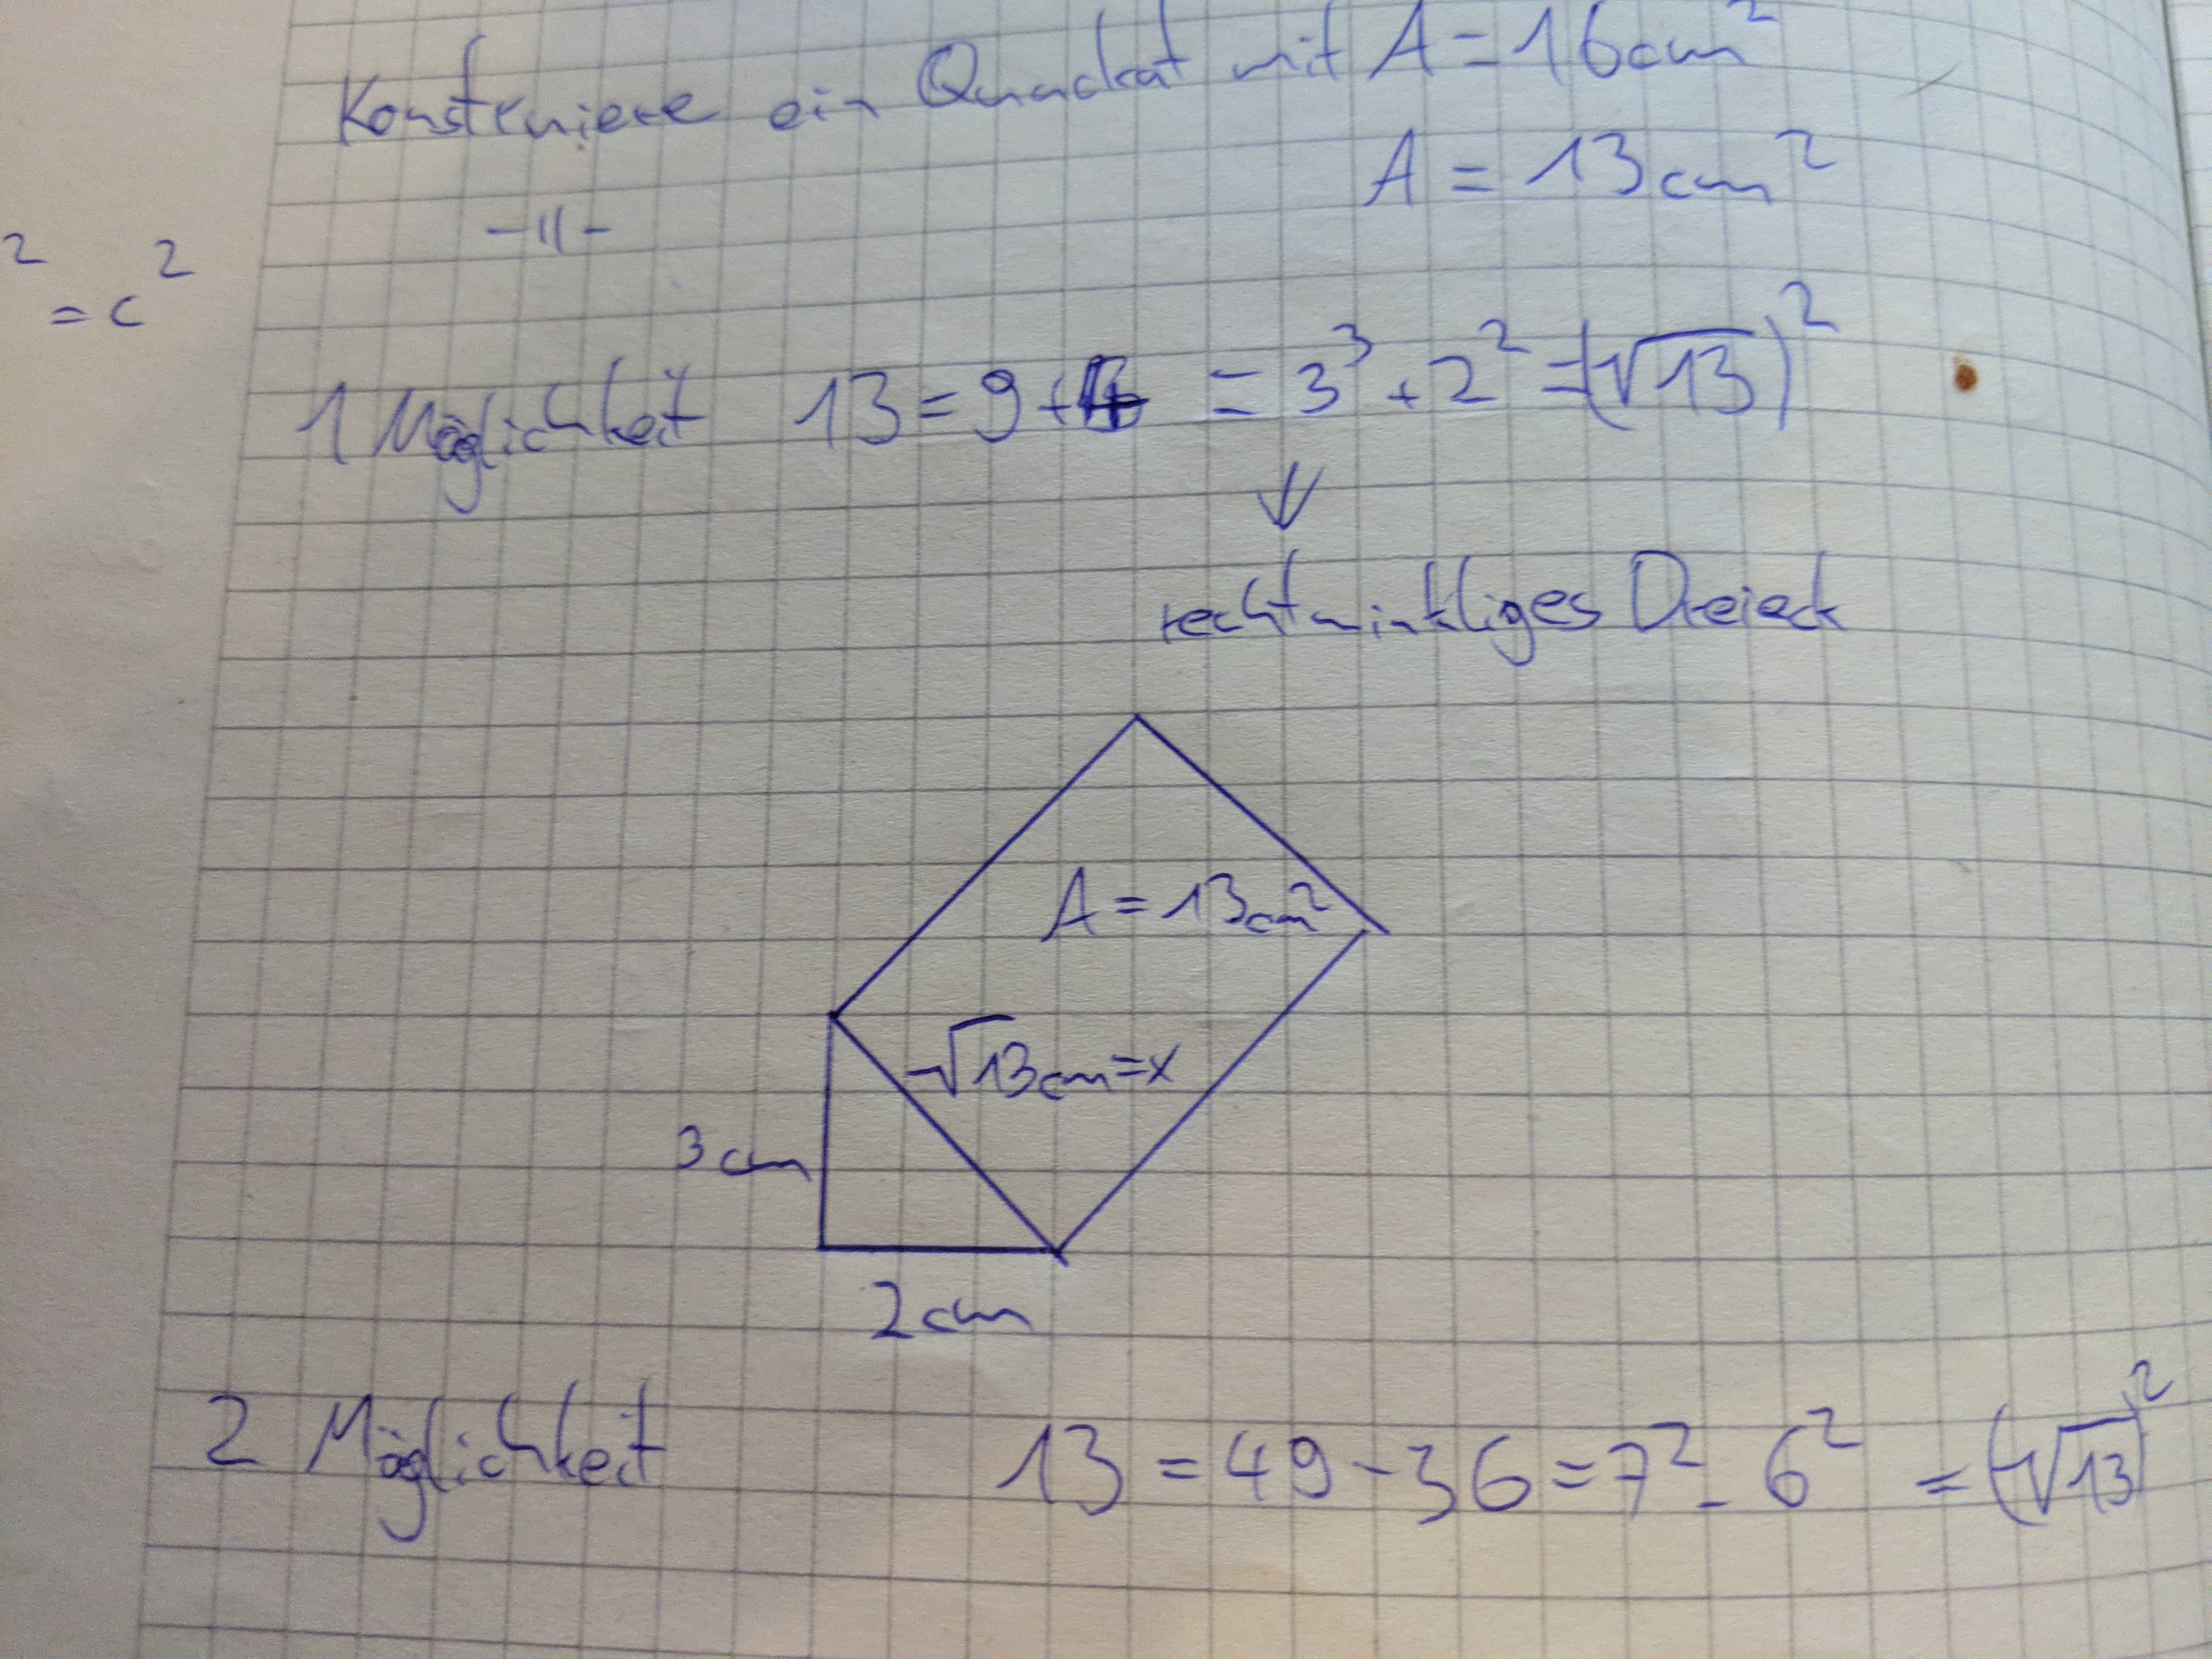 Konstruiere ein Quadrat mit A = 16cm²
A = 13cm²
-11-
² = c²
1 Möglichkeit 13 = 9 + 4 = 3³ + 2² = (√13)²
↓
rechtwinkliges Dreieck
A = 13cm²
√13cm = x
3cm
2cm
2 Möglichkeit 13 = 49 - 36 = 7² - 6² = (√13)²